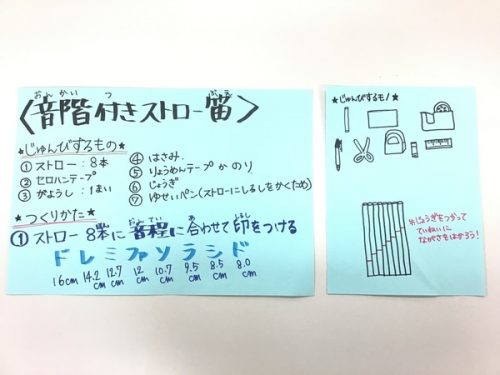 〈音階付きストロー笛〉
おんかい つ ぶえ
★じゅんびするもの★
① ストロー：8本
② セロハンテープ
③ がようし：1まい
④ はさみ
⑤ りょうめんテープ か のり
⑥ じょうぎ
⑦ ゆせいペン(ストローにしるしをかくため)
★つくりかた★
おんてい あ しるし
① ストロー 8本に 音程に合わせて印をつける
ド レ ミ ファ ソ ラ シ ド
16cm 14.2cm 12.7cm 12cm 10.7cm 9.5cm 8.5cm 8.0cm
★じゅんびするもの★
※じょうぎをつかって
ていねいに
ながさをはかろう!